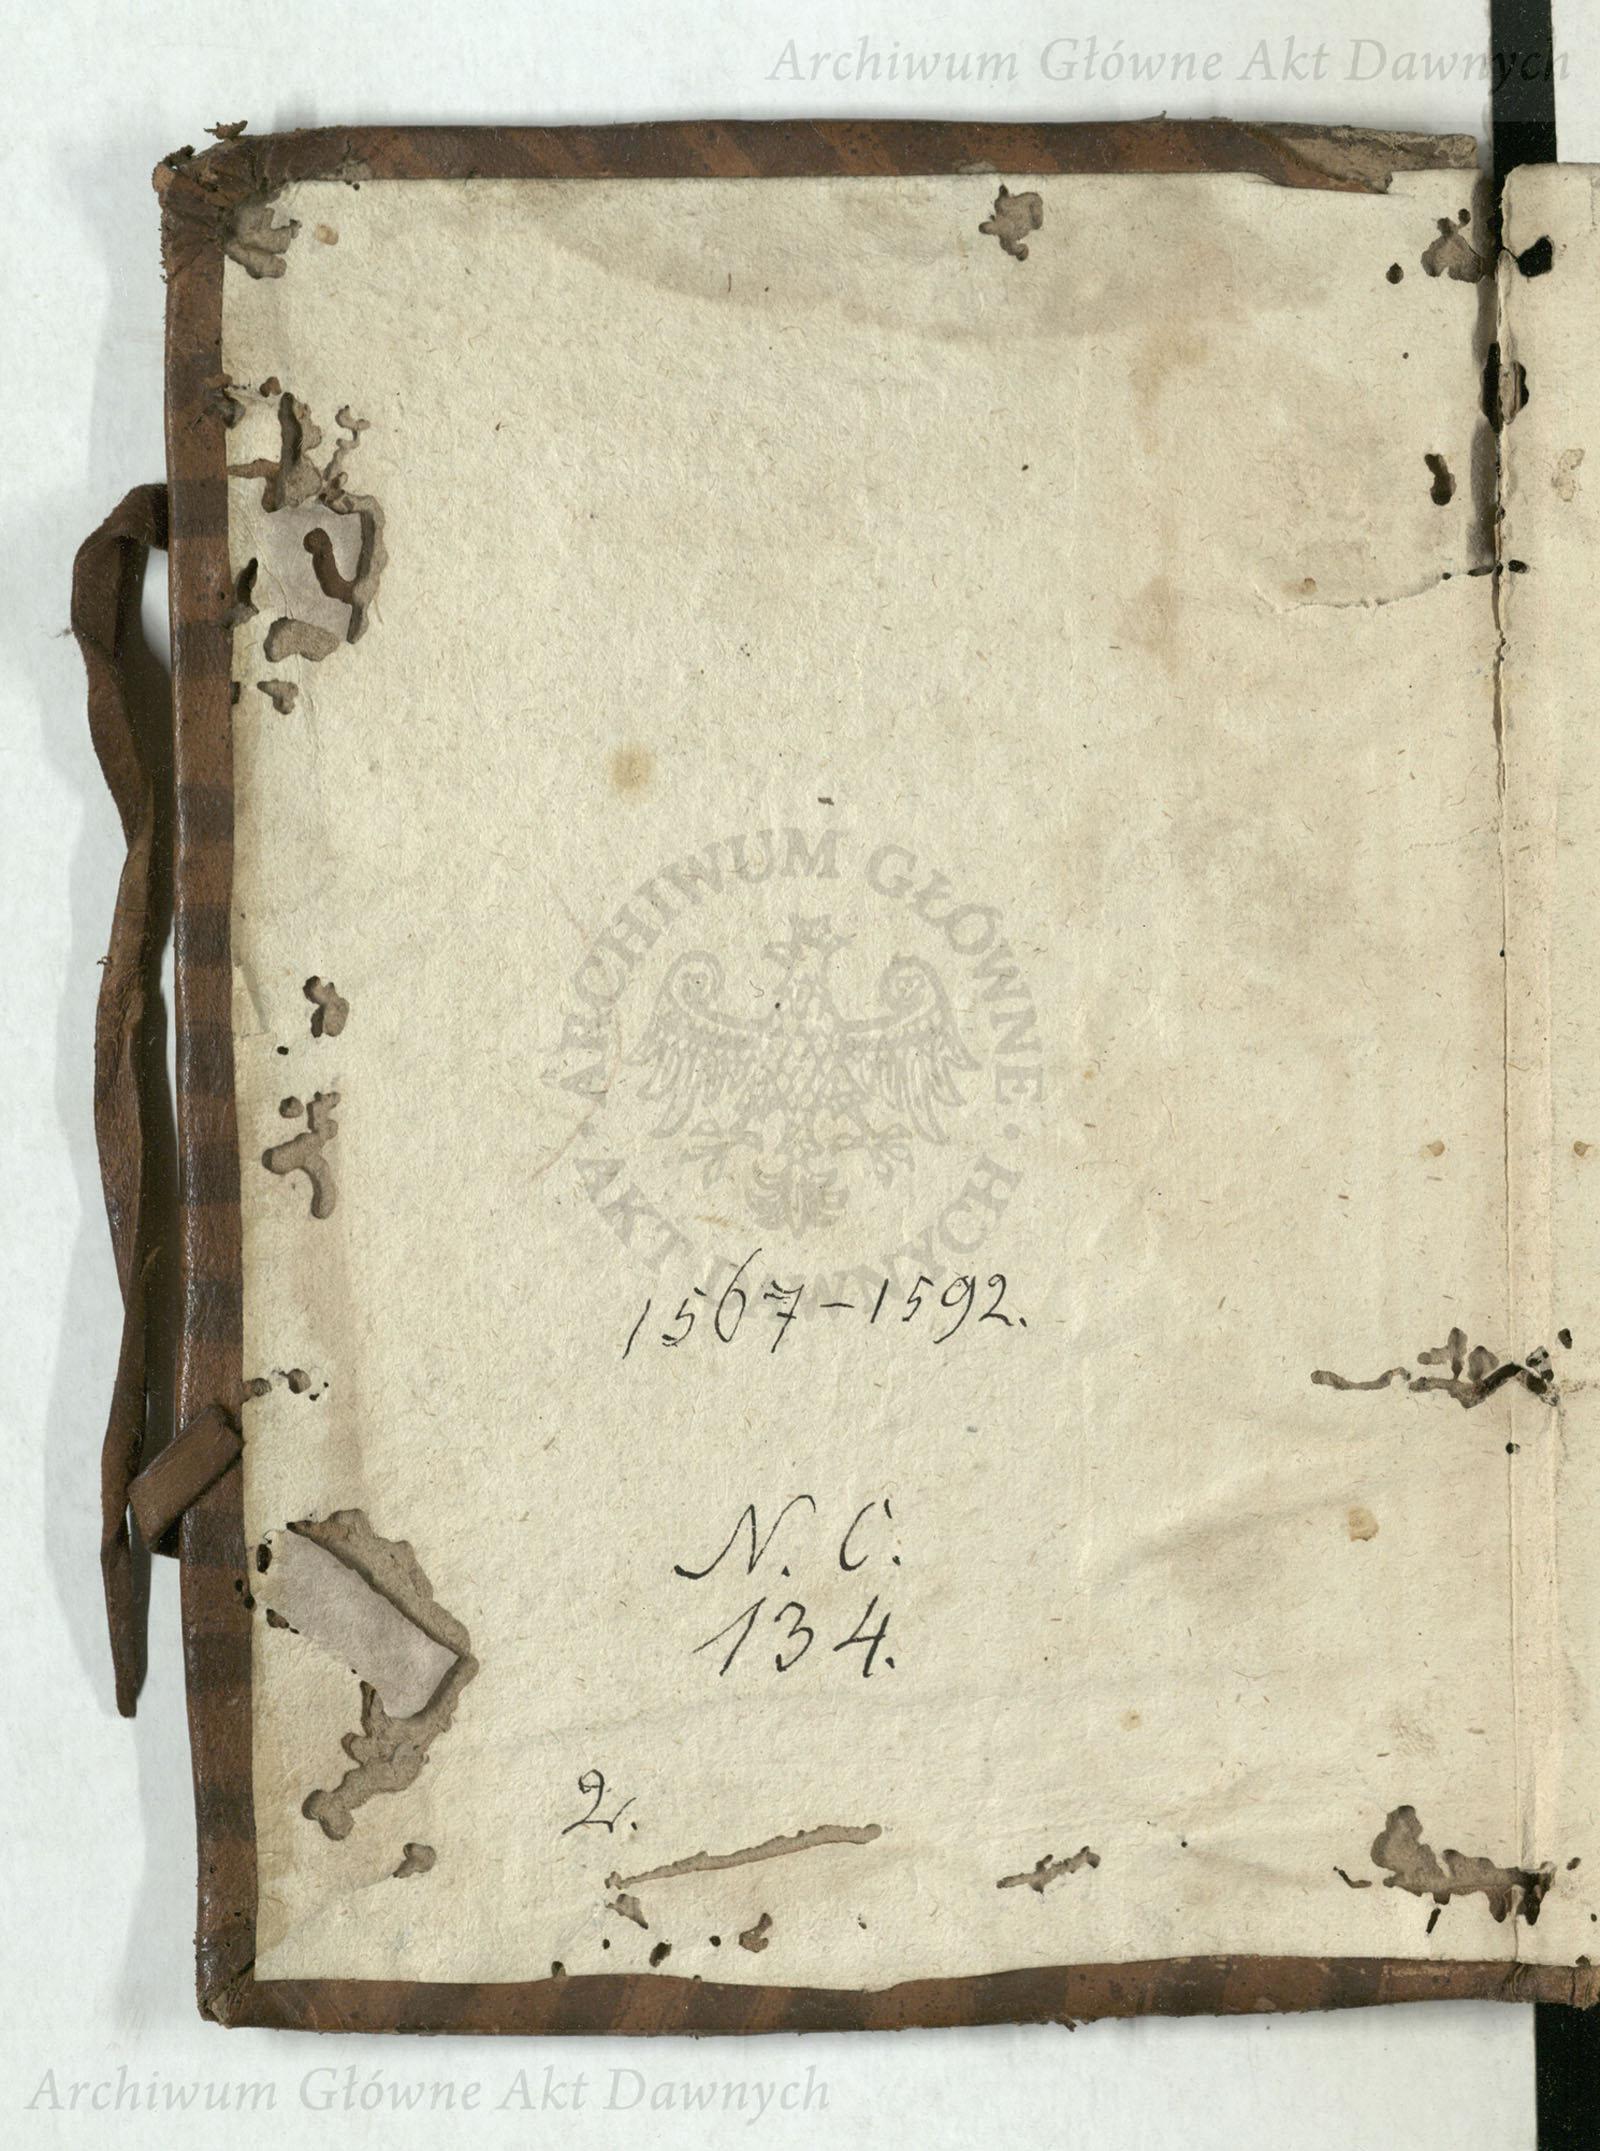 Archiwum Główne Akt Dawnych
ARCHIWUM GŁÓWNE
AKT DAWNYCH
1567-1592.
N. C.
134.
2.
Archiwum Główne Akt Dawnych